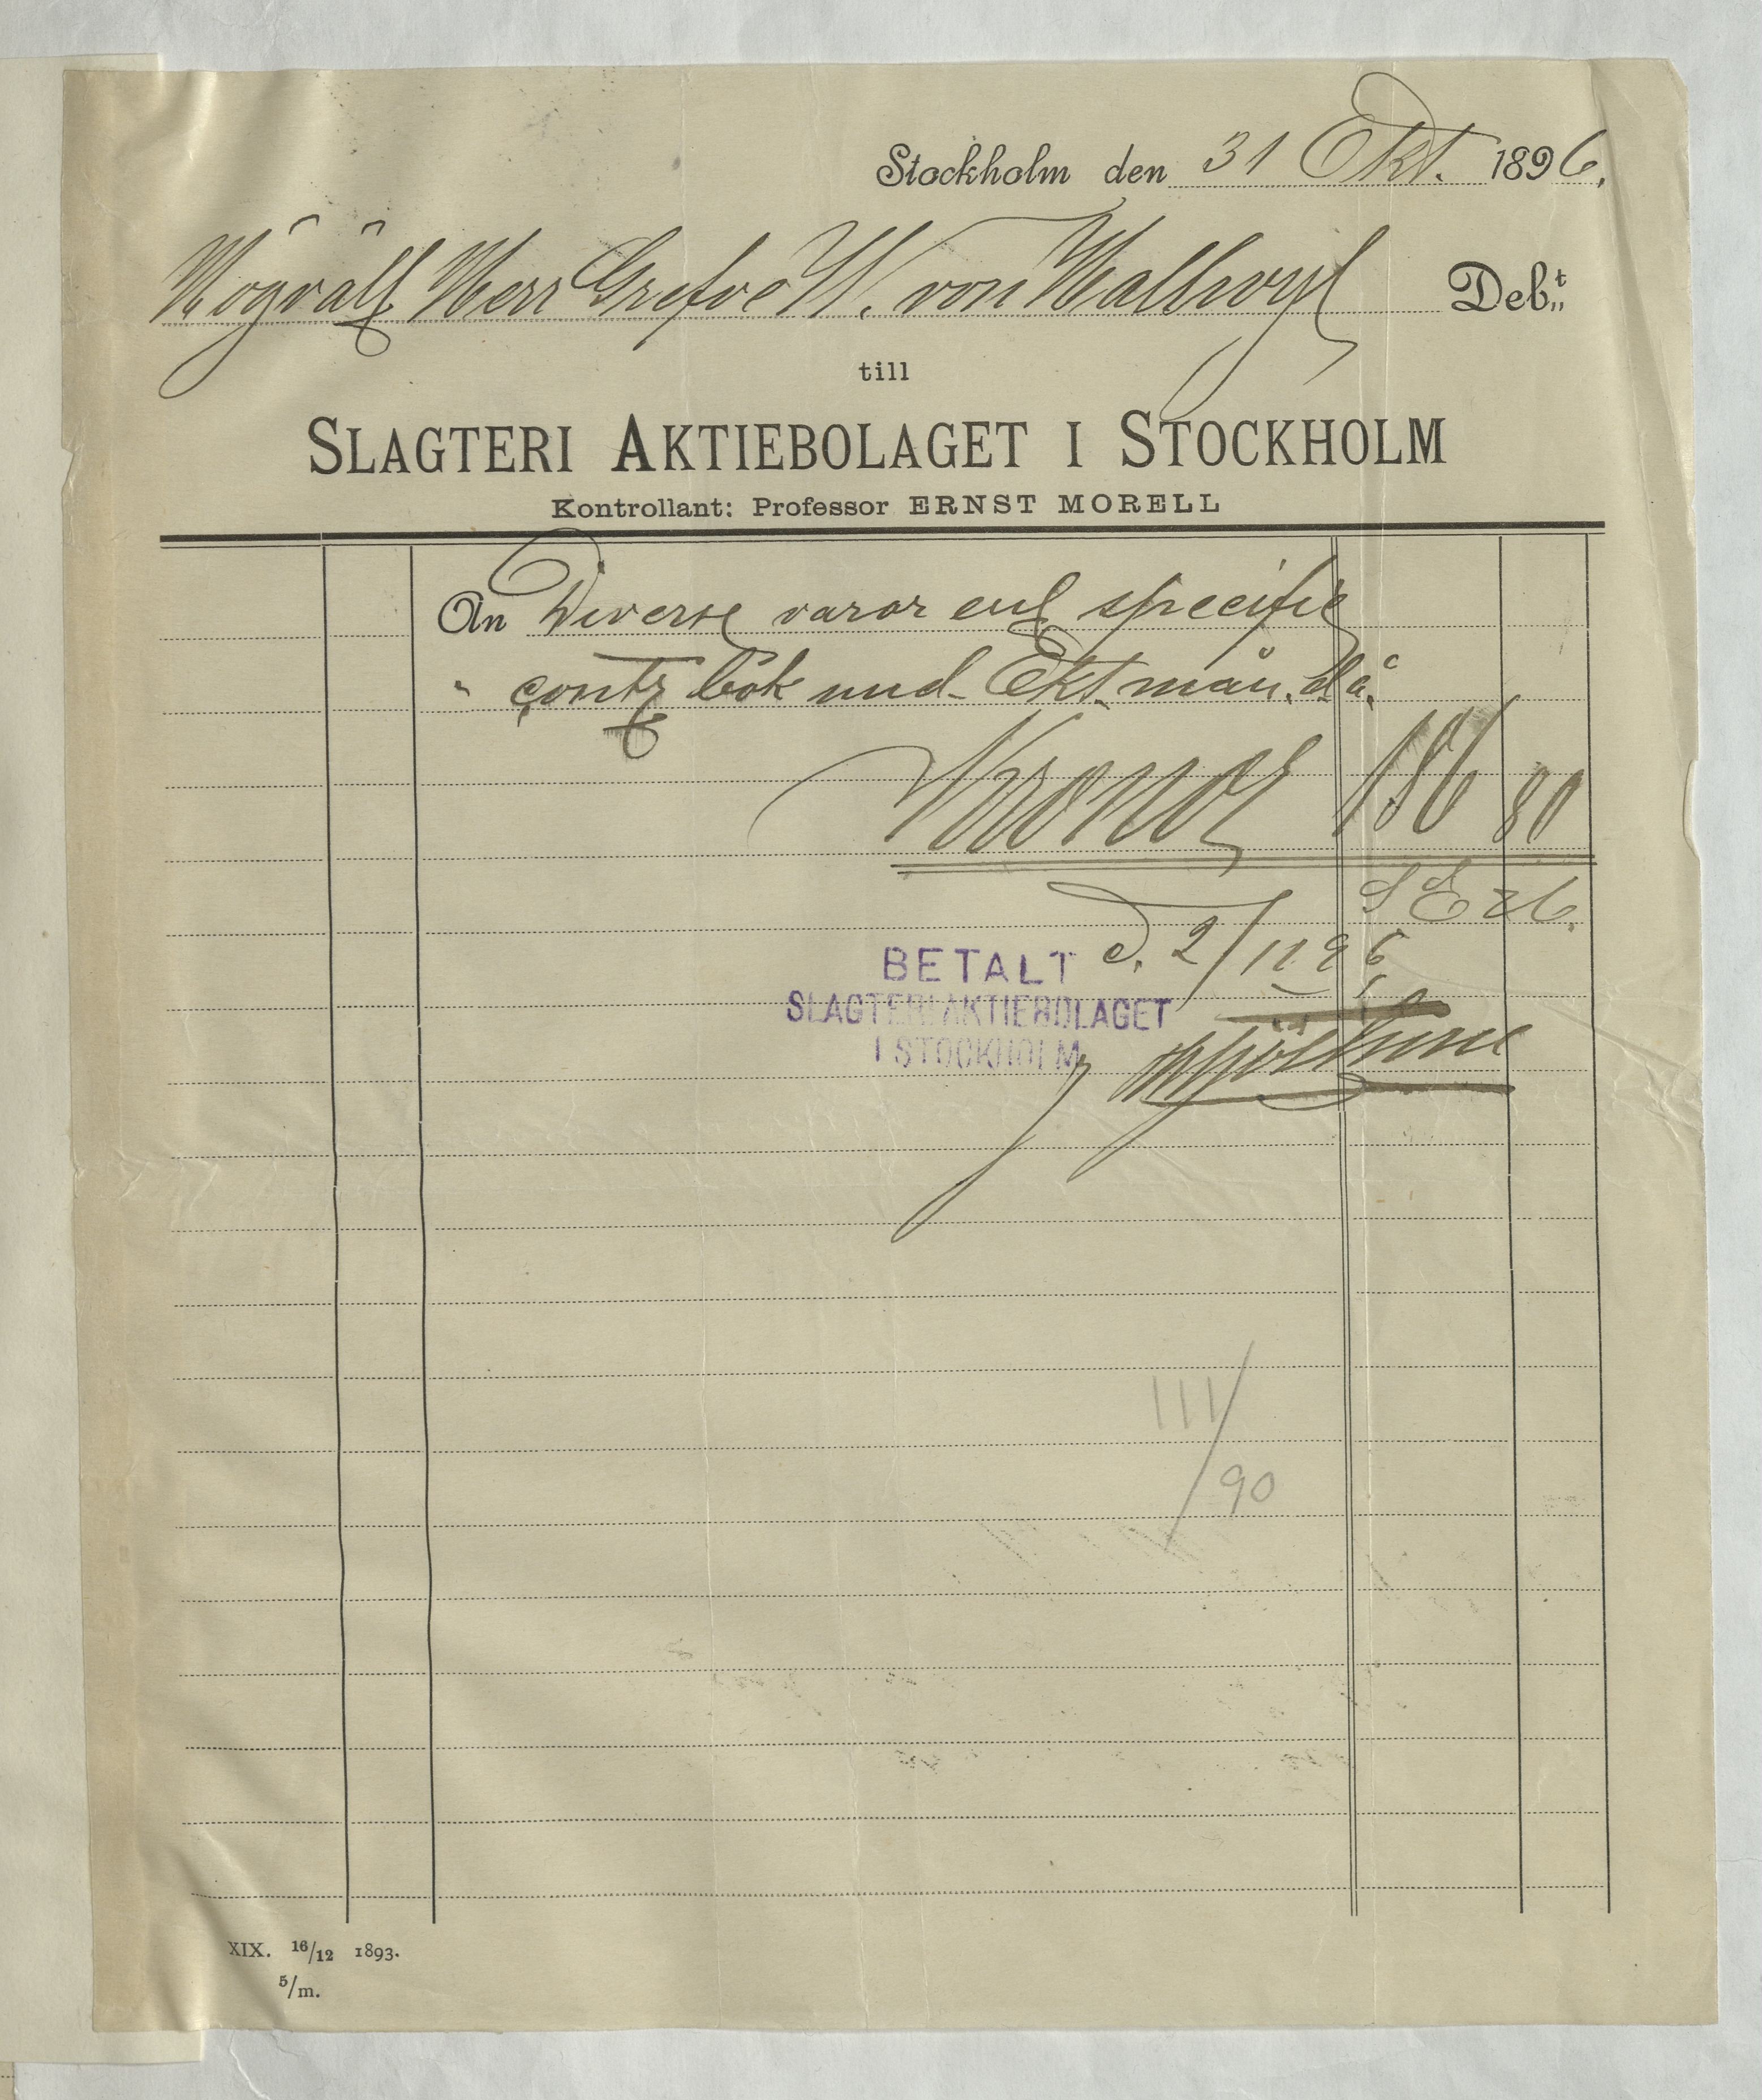 Stockholm den 31 Okt. 1896.
Högväll Herr Grefve W. von Hallwyl Deb:t
till
SLAGTERI AKTIEBOLAGET I STOCKHOLM
Kontrollant: Professor ERNST MORELL
An Diverse varor enl specific
" contr bok und. Okt. mån. då.
Kronor 186 80
S E & O.
d. 2/11 96
BETALT
SLAGTERI AKTIEBOLAGET
I STOCKHOLM
111/90
XIX. 16/12 1893.
5/m.